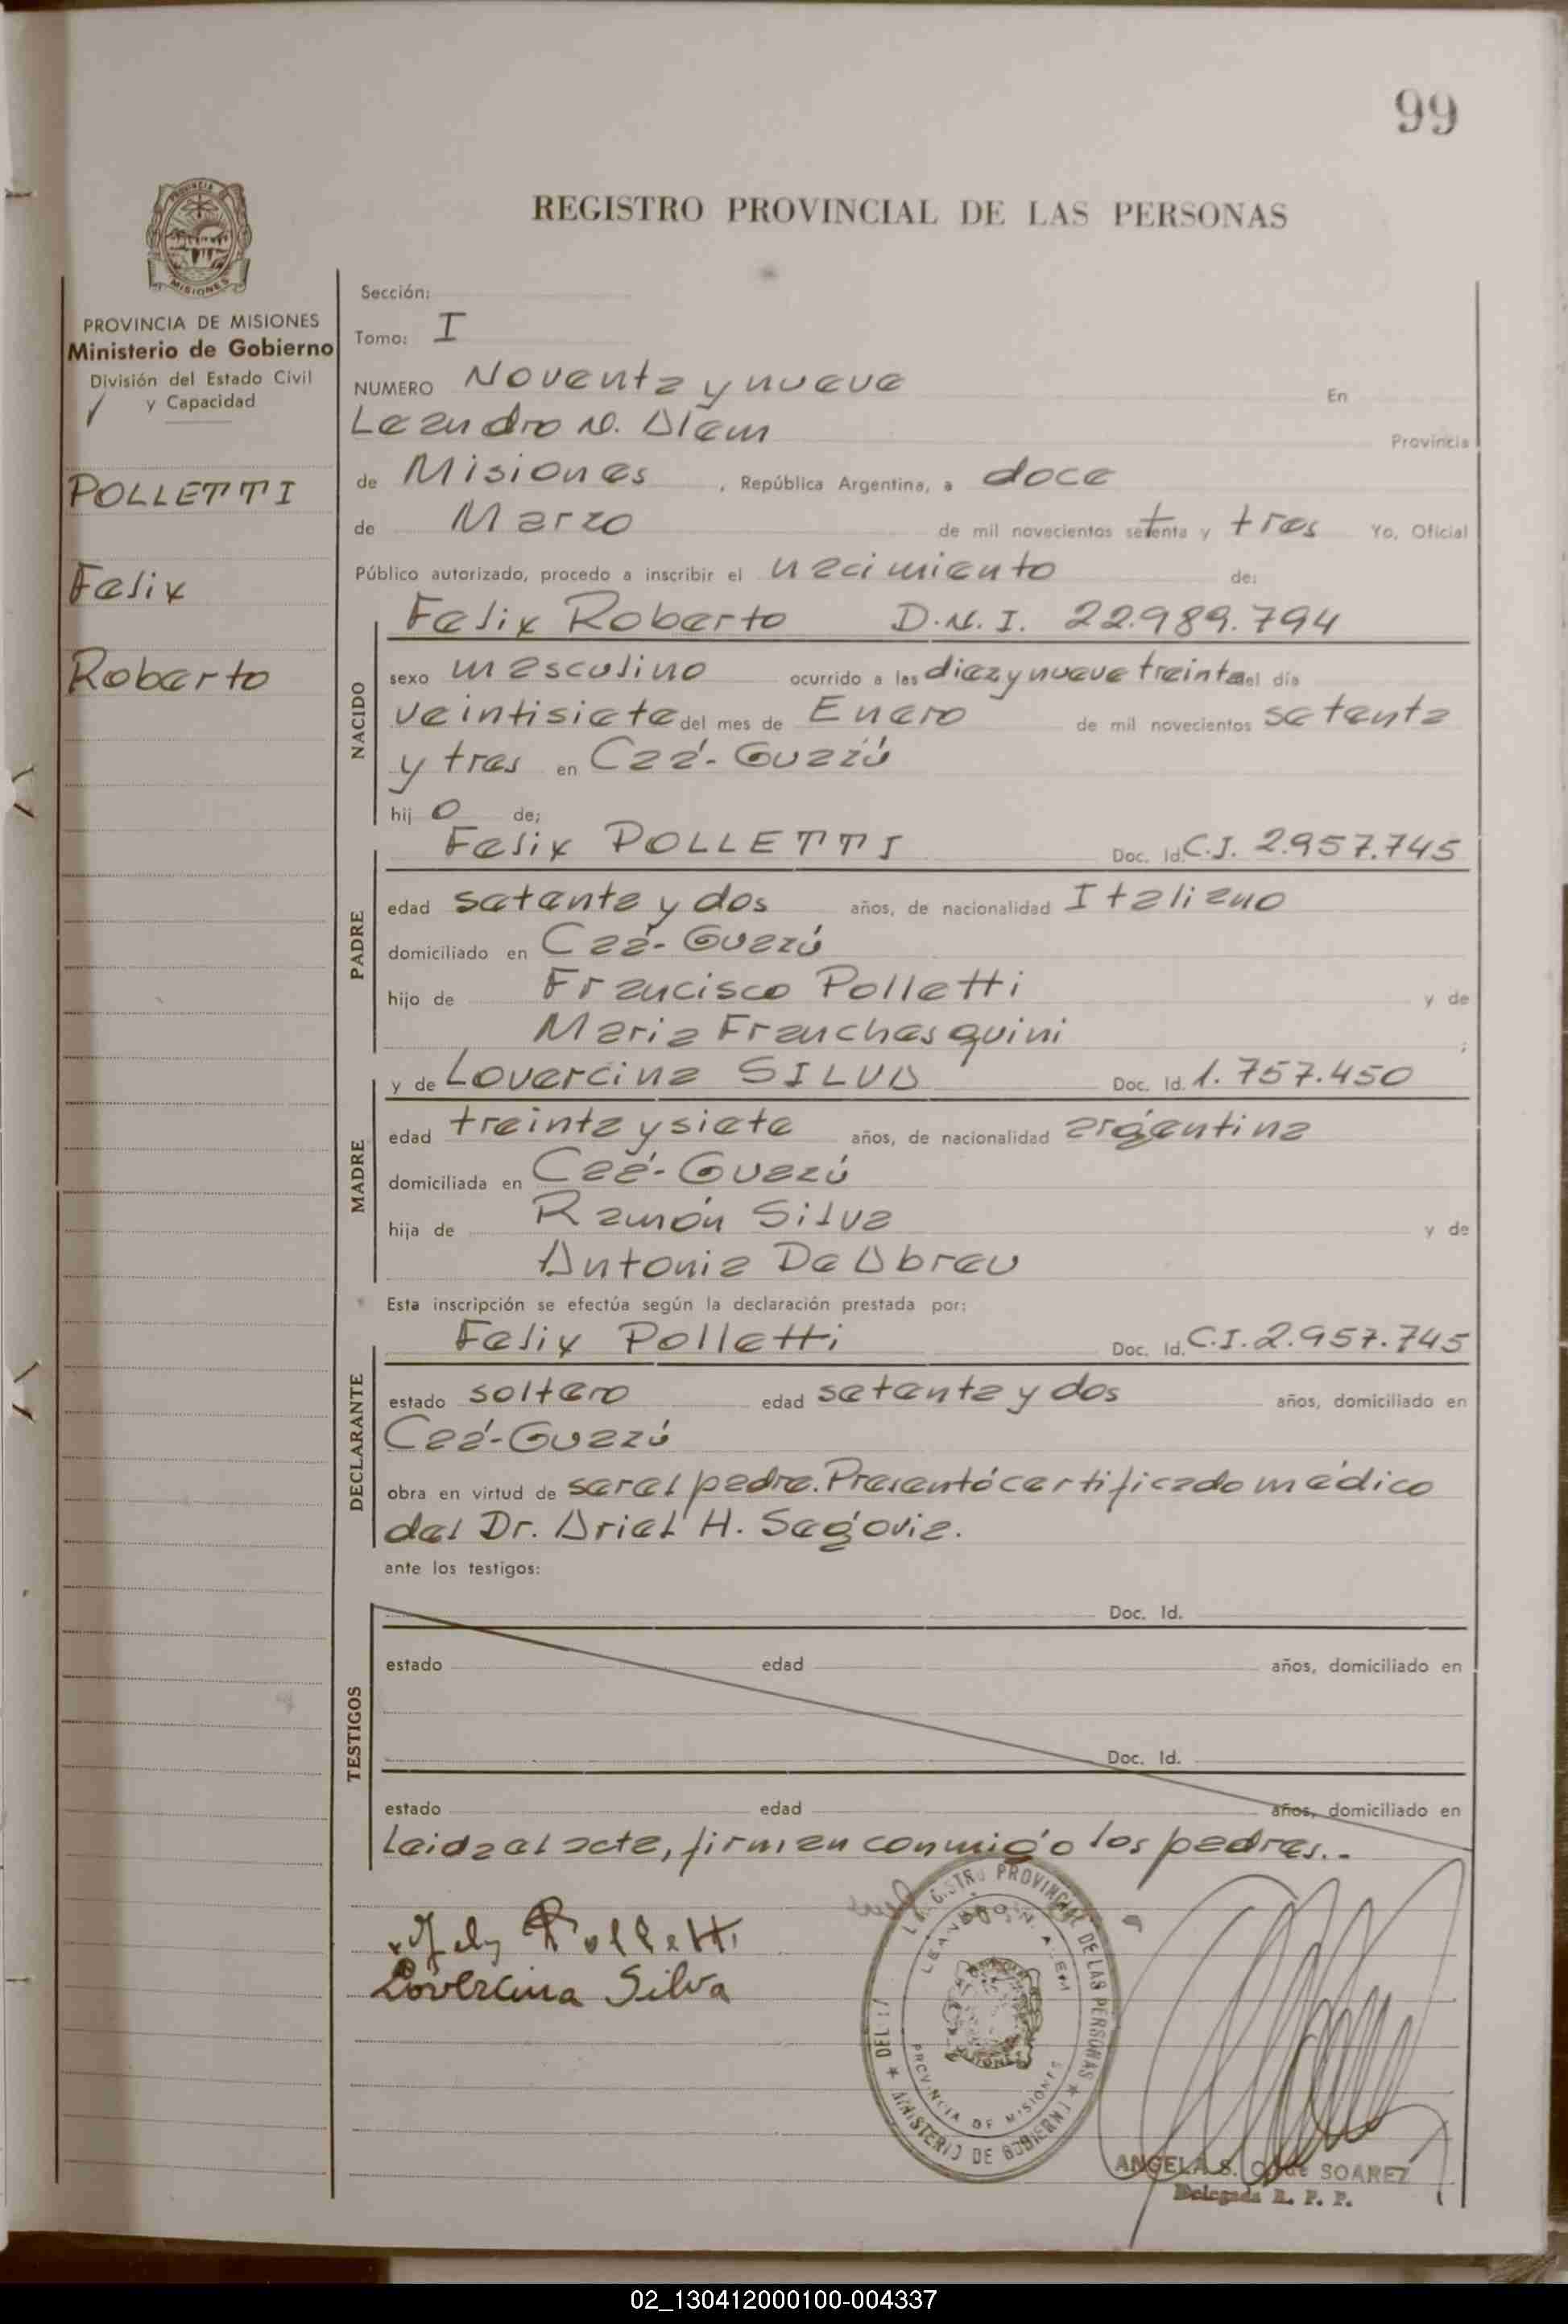 99
REGISTRO PROVINCIAL DE LAS PERSONAS
PROVINCIA DE MISIONES
Ministerio de Gobierno
División del Estado Civil
y Capacidad
POLLETTI
Felix
Roberto
Sección:
Tomo: I
NUMERO Noventa y nueve En
Leandro N. Alem Provincia
de Misiones, República Argentina, a doce
de Marzo de mil novecientos setenta y tres Yo, Oficial
Público autorizado, procedo a inscribir el nacimiento de:
Felix Roberto D.N.I. 22.989.794
NACIDO
sexo masculino ocurrido a las diez y nueve treinta del día
veintisiete del mes de Enero de mil novecientos setenta
y tres en Caá-Guazú
hij o de;
Felix POLLETTI Doc. Id. C.I. 2.957.745
PADRE
edad setenta y dos años, de nacionalidad Italiano
domiciliado en Caá-Guazú
hijo de Francisco Polletti y de
Maria Franchesquini ;
y de Lovercina SILVA Doc. Id. 1.757.450
MADRE
edad treinta y siete años, de nacionalidad argentina
domiciliada en Caá-Guazú
hija de Ramón Silva y de
Antonia De Abreu
Esta inscripción se efectúa según la declaración prestada por:
Felix Polletti Doc. Id. C.I. 2.957.745
DECLARANTE
estado soltero edad setenta y dos años, domiciliado en
Caá-Guazú
obra en virtud de ser el padre. Presentó certificado médico
del Dr. Ariel H. Segovia.
ante los testigos:
TESTIGOS
Doc. Id.
estado edad años, domiciliado en
Doc. Id.
estado edad años, domiciliado en
Leida el acta, firman conmigo los padres..-
Polletti
Lovercina Silva
REGISTRO PROVINCIAL DE LAS PERSONAS
LEANDRO N. ALEM
PROVINCIA DE MISIONES
MINISTERIO DE GOBIERNO
ANGELA S. de SOAREZ
Delegada R. P. P.
02_130412000100-004337